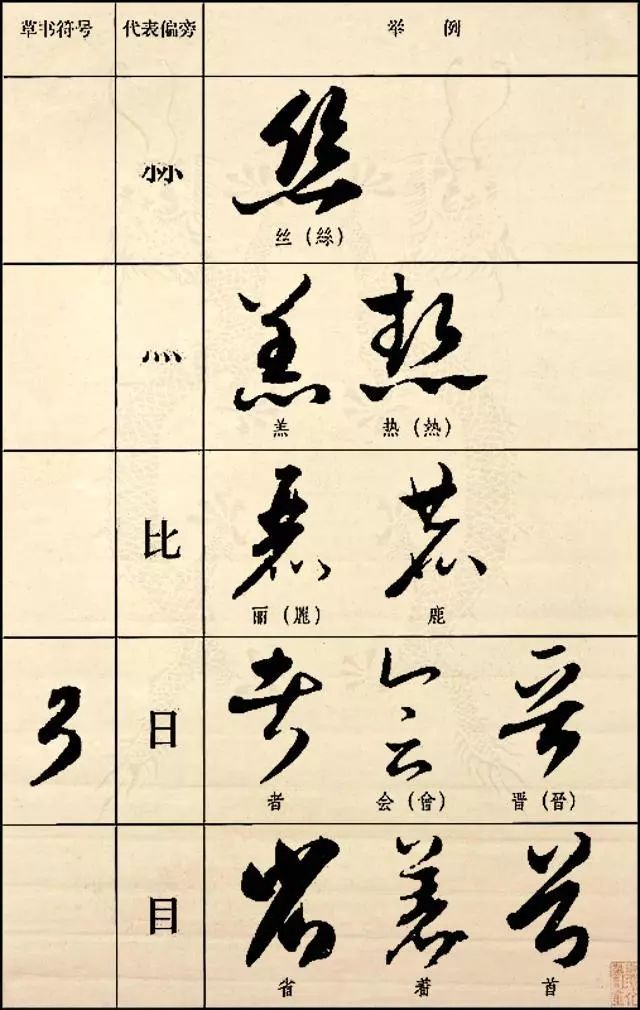 草书符号 代表偏旁 举例
丝（絲）
灬
羔 热（熱）
比
丽（麗） 鹿
日
者 会（會） 晋（晉）
目
省 着 首